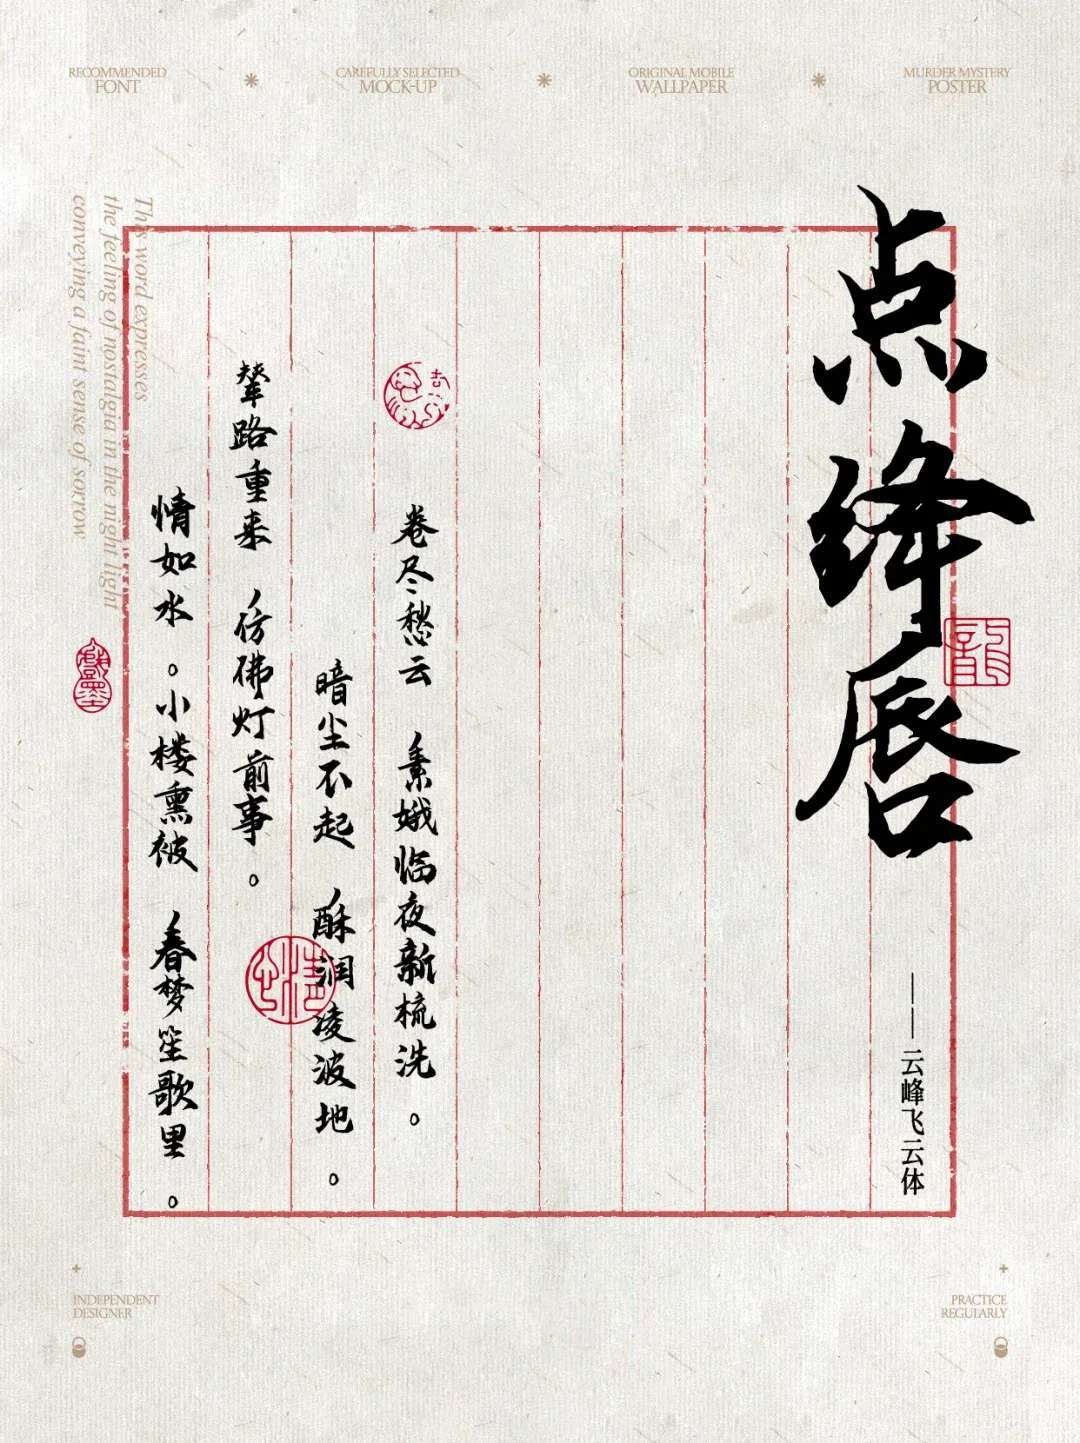 RECOMMENDED
FONT
CAREFULLY SELECTED
MOCK-UP
ORIGINAL MOBILE
WALLPAPER
MURDER MYSTERY
POSTER
点绛唇
——云峰飞云体
卷尽愁云 素娥临夜新梳洗。
暗尘不起 酥润凌波地。
辇路重来 仿佛灯前事。
情如水。小楼熏被 春梦笙歌里。
吉
龍
This word expresses
the feeling of nostalgia in the night light
conveying a faint sense of sorrow
INDEPENDENT
DESIGNER
PRACTICE
REGULARLY